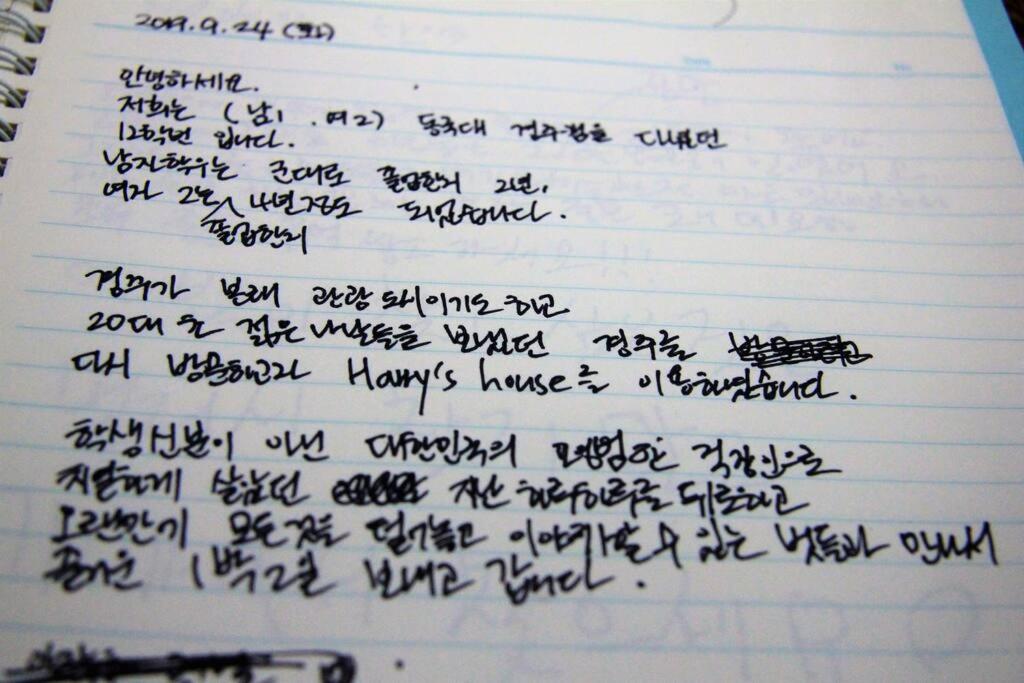 2019.9.24 (화)
안녕하세요.
저희는 (남1. 여2) 동국대 경주캠을 다녔던
12학번 입니다.
남자학우는 군대로 졸업한지 2년,
여자 2는 4년정도 되었습니다.
졸업한지
경주가 본래 관광도시이기도 하고
20대 초 젊은 나날들을 보냈던 경주를
다시 방문하고자 Harry's house를 이용하였습니다.
학생신분이 아닌 대한민국의 모범 직장인으로
치열하게 살았던 지난 하루하루를 뒤로하고
오랜만에 모든것을 털어놓고 이야기할 수 있는 벗들과 만나서
즐거운 1박2일 보내고 갑니다.